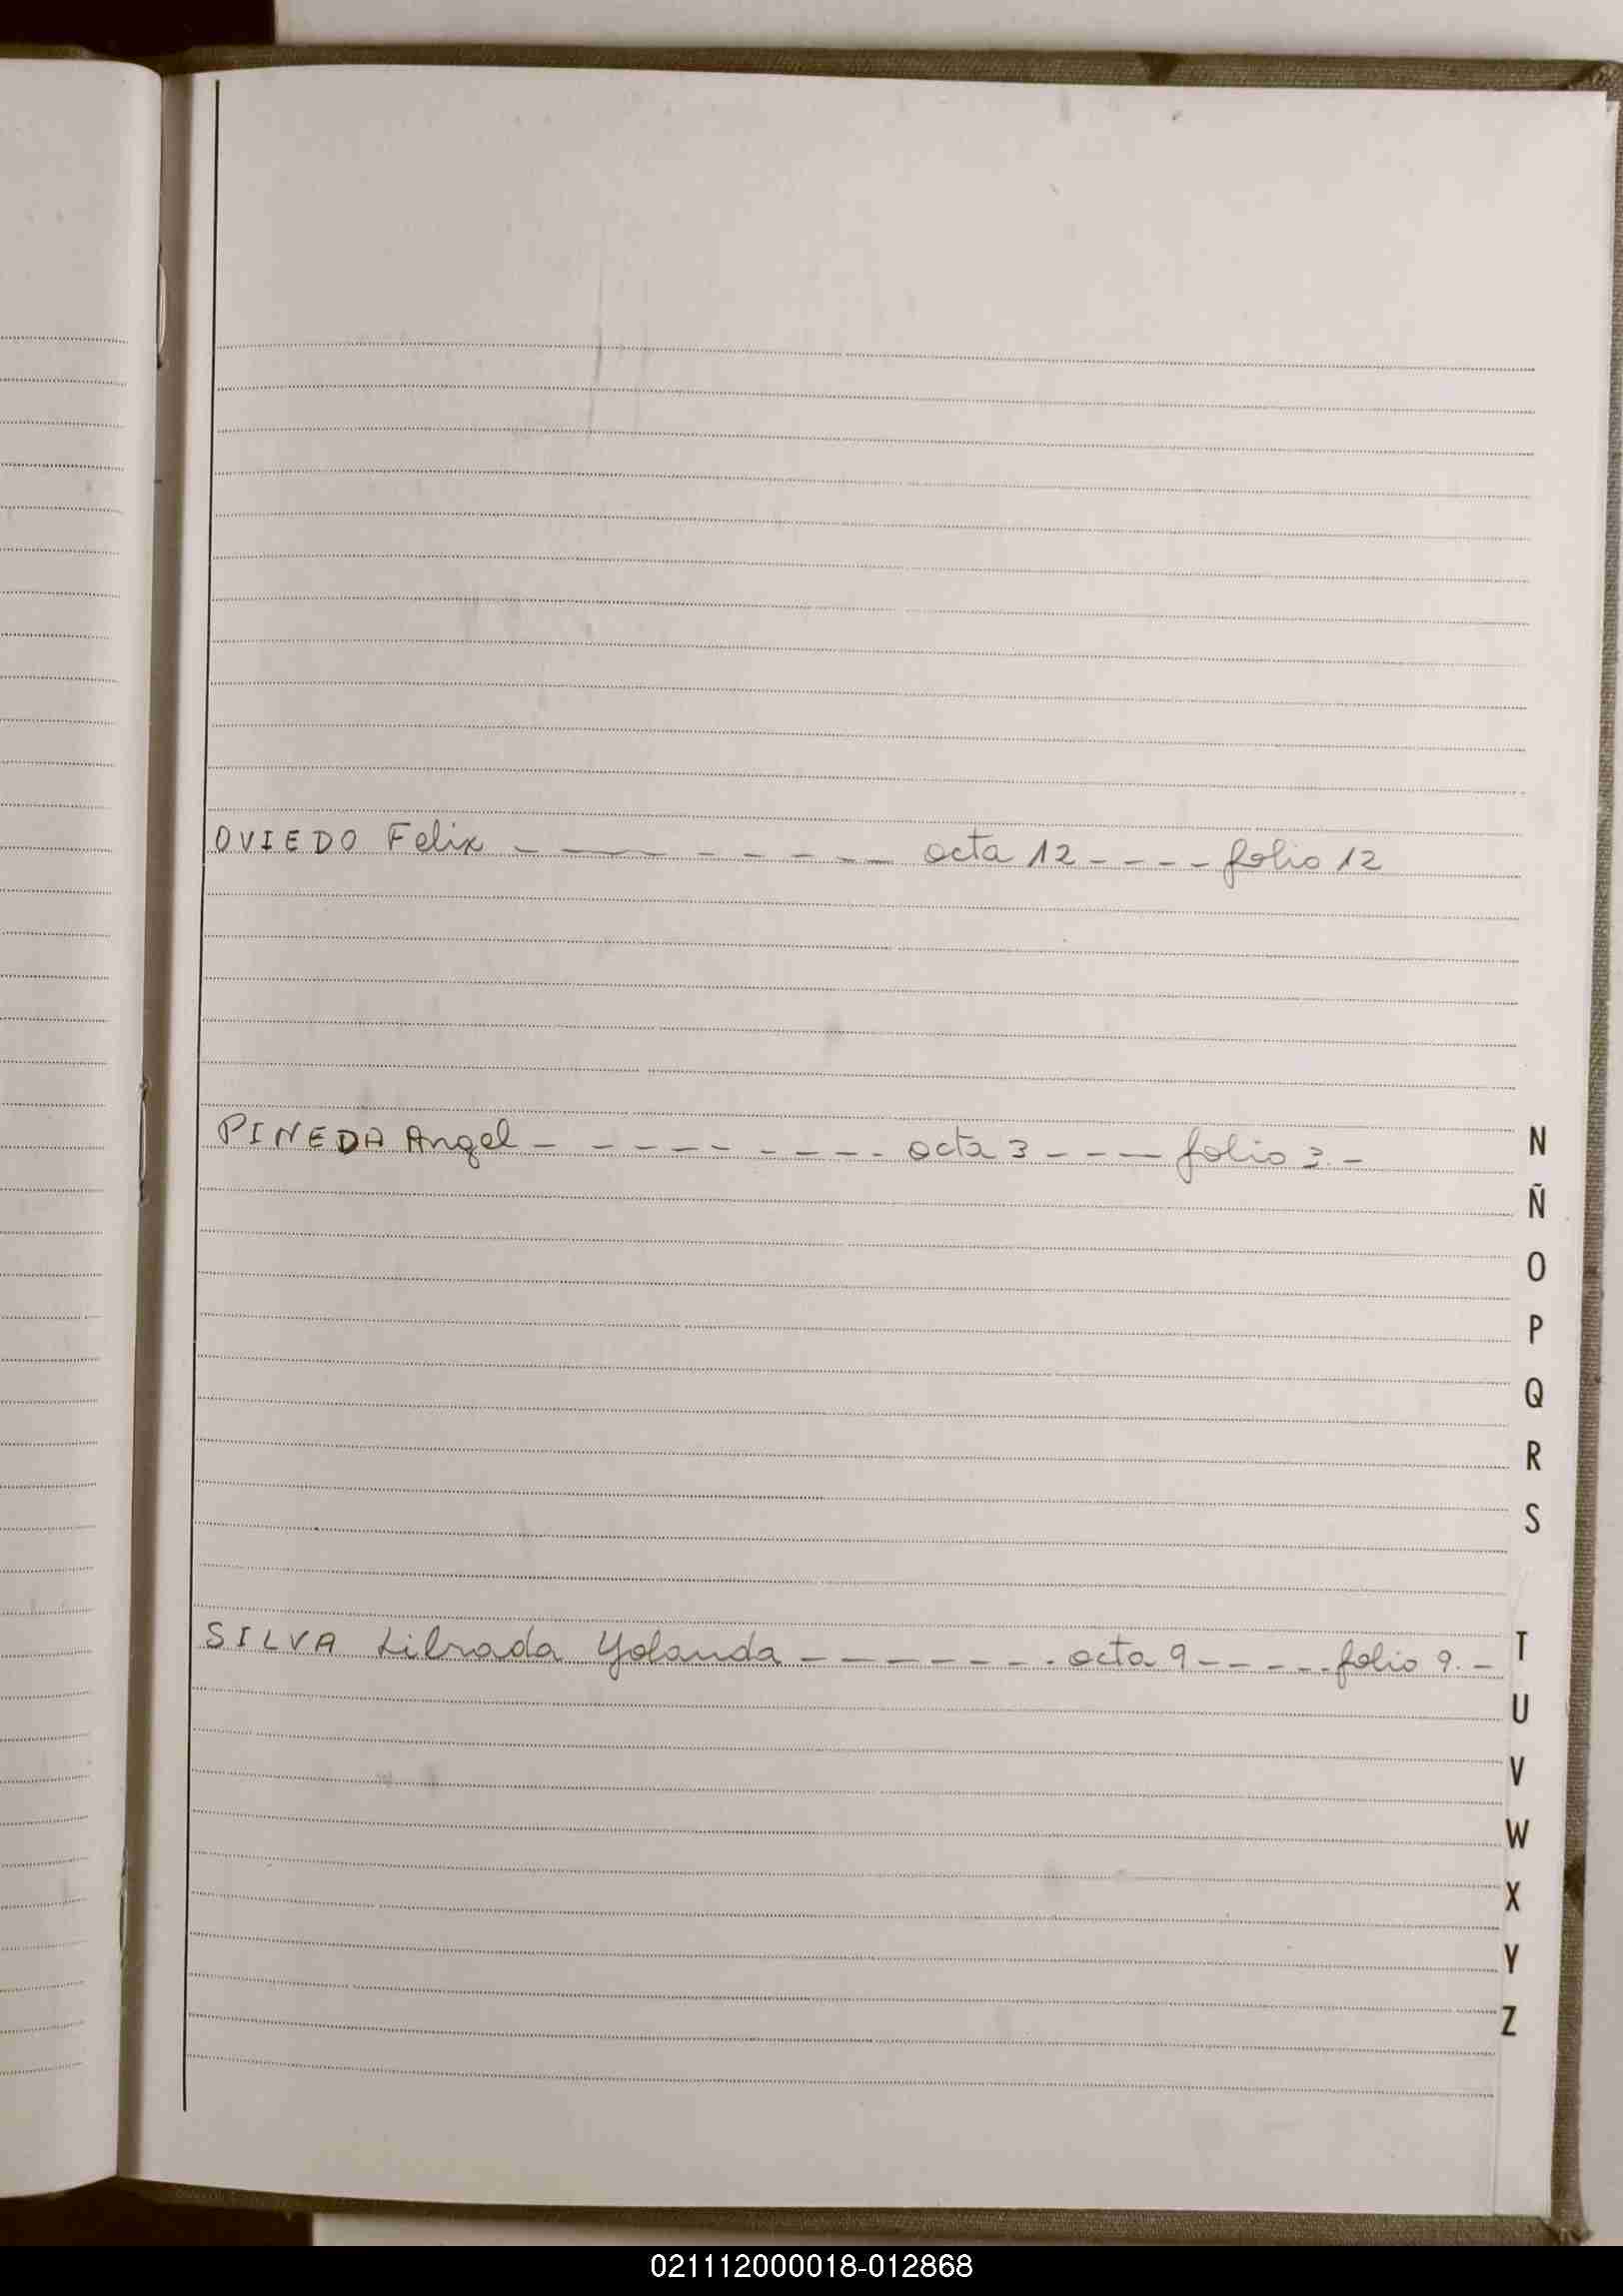 OVIEDO Felix - - - - - - - - acta 12 - - - - folio 12
PINEDA Angel - - - - - - - - - acta 3 - - - - folio 3. -
N
Ñ
O
P
Q
R
S
SILVA Librada Yolanda - - - - - - - . acta 9 - - - - - folio 9. -
T
U
V
W
X
Y
Z
021112000018-012868